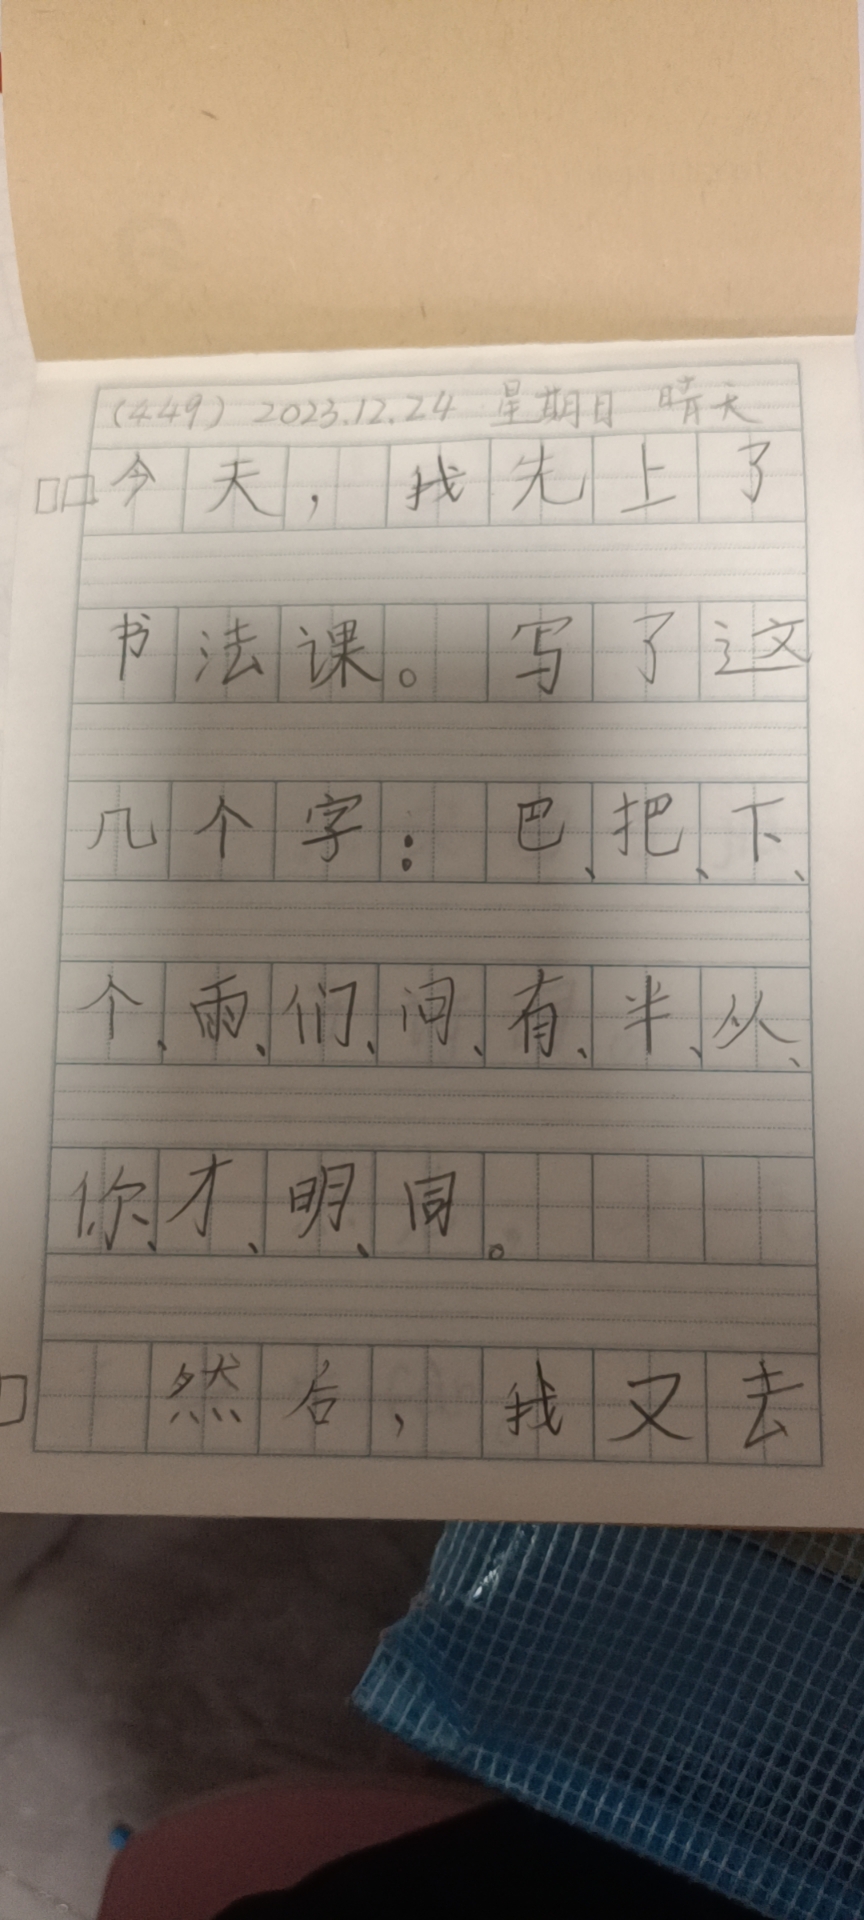 (449) 2023.12.24 星期日 晴天
今天，我先上了
书法课。写了这
几个字：巴、把、下、
个、雨、们、问、有、半、从、
你、才、明、同。
然后，我又去